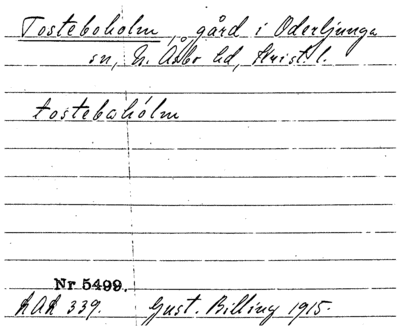 Tosteboholm, gård i Oderljunga
sn, N. Åsbo hd, Krist. l.
tostebahólm
Nr 5499.
LAL 339. Gust. Billing 1915.